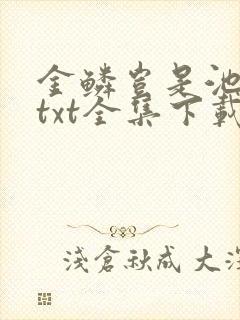 金鳞岂是池
txt全集下载
浅倉秋成 大深